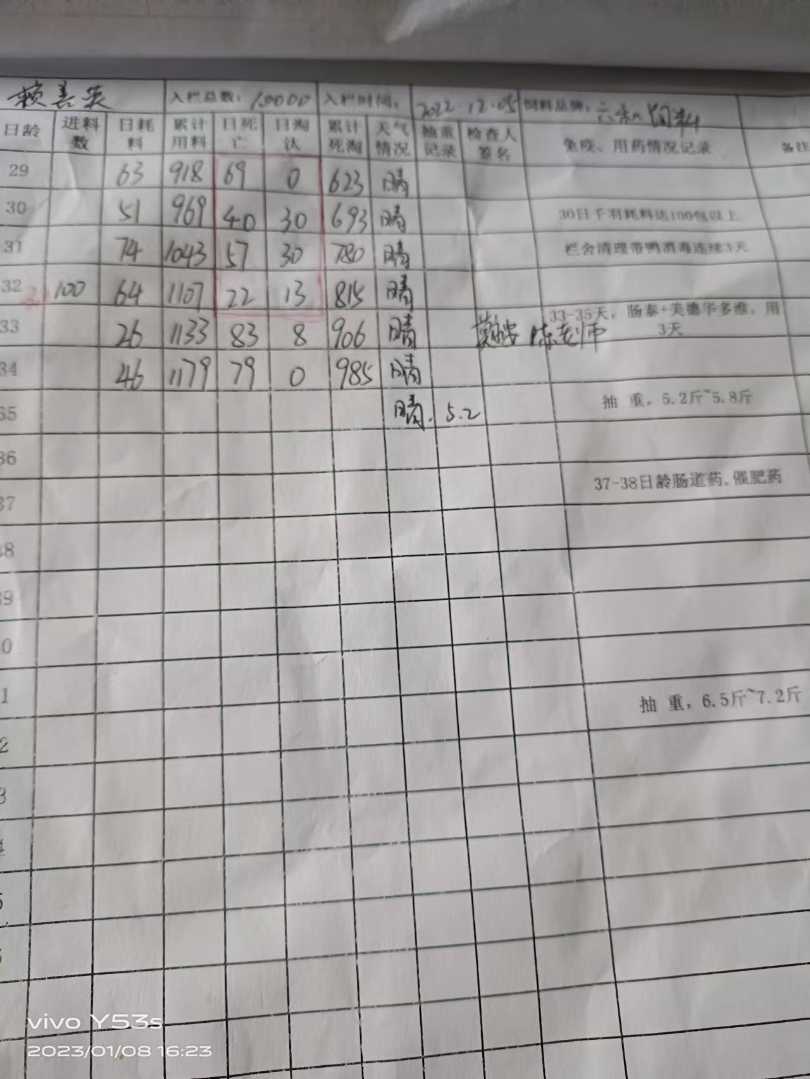 赖善英 入栏总数: 10000 入栏时间: 2022.12.05 饲料品牌: 六和饲料
日龄 进料数 日耗料 累计用料 日死亡 日淘汰 累计死淘 天气情况 抽重记录 检查人签名 免疫、用药情况记录 备注
29 63 918 69 0 623 晴
30 51 969 40 30 693 晴 30日千羽耗料达100包以上
31 74 1043 57 30 780 晴 栏舍清理带鸭消毒连续3天
32 100 64 1107 22 13 815 晴
33 26 1133 83 8 906 晴 陈老师 33-35天，肠泰+美德华多维，用3天
34 46 1179 79 0 985 晴
35 晴. 5.2 抽 重，5.2斤~5.8斤
36
37 37-38日龄肠道药、催肥药
38
39
0
1 抽 重，6.5斤~7.2斤
2
3
4
5
vivo Y53s
2023/01/08 16:23